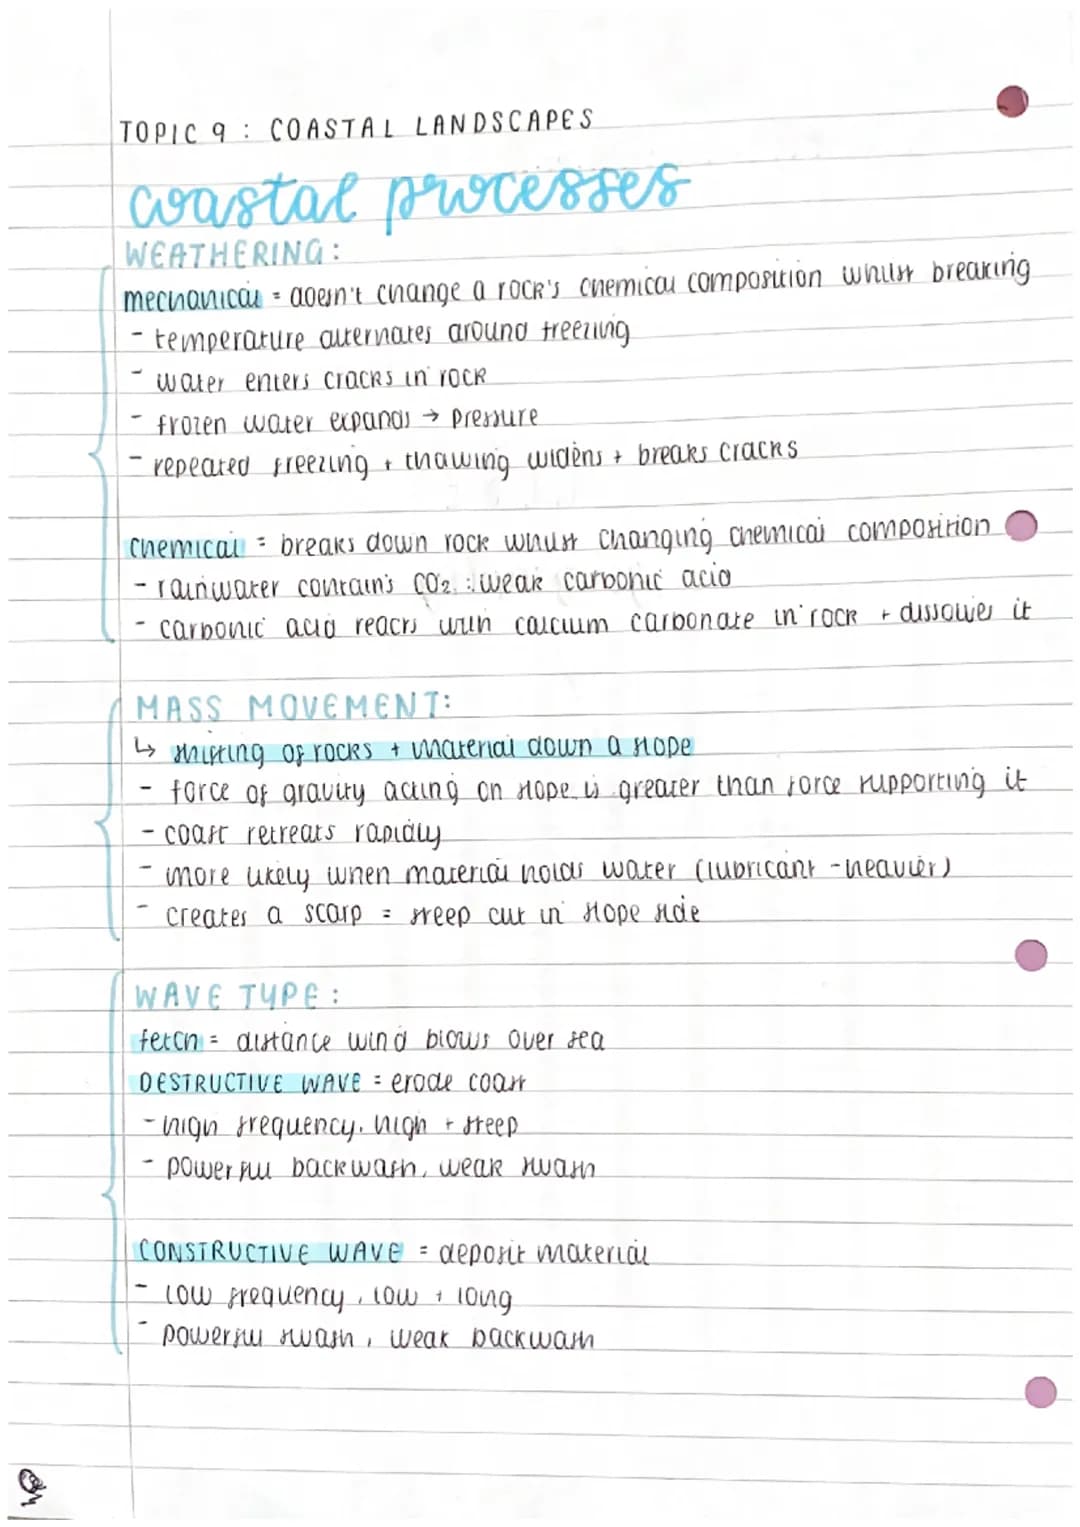 TOPIC 9 : COASTAL LANDSCAPES
coastal processes
WEATHERING:
mechanical = doesn't change a rock's chemical composition whilst breaking
- temperature alternates around freezing
- water enters cracks in rock
- frozen water expands → pressure
- repeated freezing + thawing widens + breaks cracks
chemical = breaks down rock whilst changing chemical composition
- rainwater contains CO2 ∴ weak carbonic acid
- carbonic acid reacts with calcium carbonate in rock + dissolves it
MASS MOVEMENT:
↳ shifting of rocks + material down a slope
- force of gravity acting on slope is greater than force supporting it
- coast retreats rapidly
- more likely when material holds water (lubricant - heavier)
- creates a scarp = steep cut in slope side
WAVE TYPE:
fetch = distance wind blows over sea
DESTRUCTIVE WAVE = erode coast
- high frequency, high + steep
- powerful backwash, weak swash
CONSTRUCTIVE WAVE = deposit material
- low frequency, low + long
- powerful swash, weak backwash